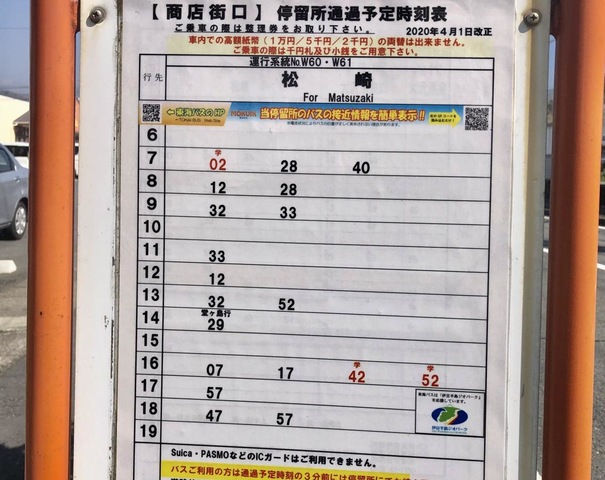 【商店街口】停留所通過予定時刻表
ご乗車の際は整理券をお取り下さい。 2020年4月1日改正
車内での高額紙幣（1万円／5千円／2千円）の両替は出来ません。
ご乗車の際は千円札及び小銭をご用意下さい。
運行系統No.W60・W61
行先 松崎
For Matsuzaki
←東海バスのHP
当停留所のバスの接近情報を簡単表示!!
6
学
7 02 28 40
8 12 28
9 32 33
10
11 33
12 12
13 32 52
堂ヶ島行
14 29
15
学 学
16 07 17 42 52
17 57
18 47 57
19
東海バスは「伊豆半島ジオパーク」
を応援しています。
伊豆半島ジオパーク
Suica・PASMOなどのICカードはご利用できません。
バスご利用の方は通過予定時刻の3分前には停留所に